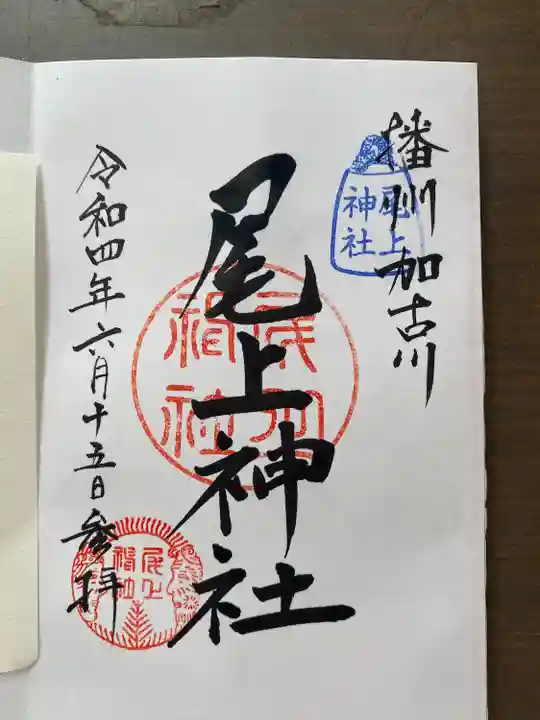 播州加古川
尾上
神社
尾上神社
尾上
神社
尾上
神社
令和四年六月十五日参拝